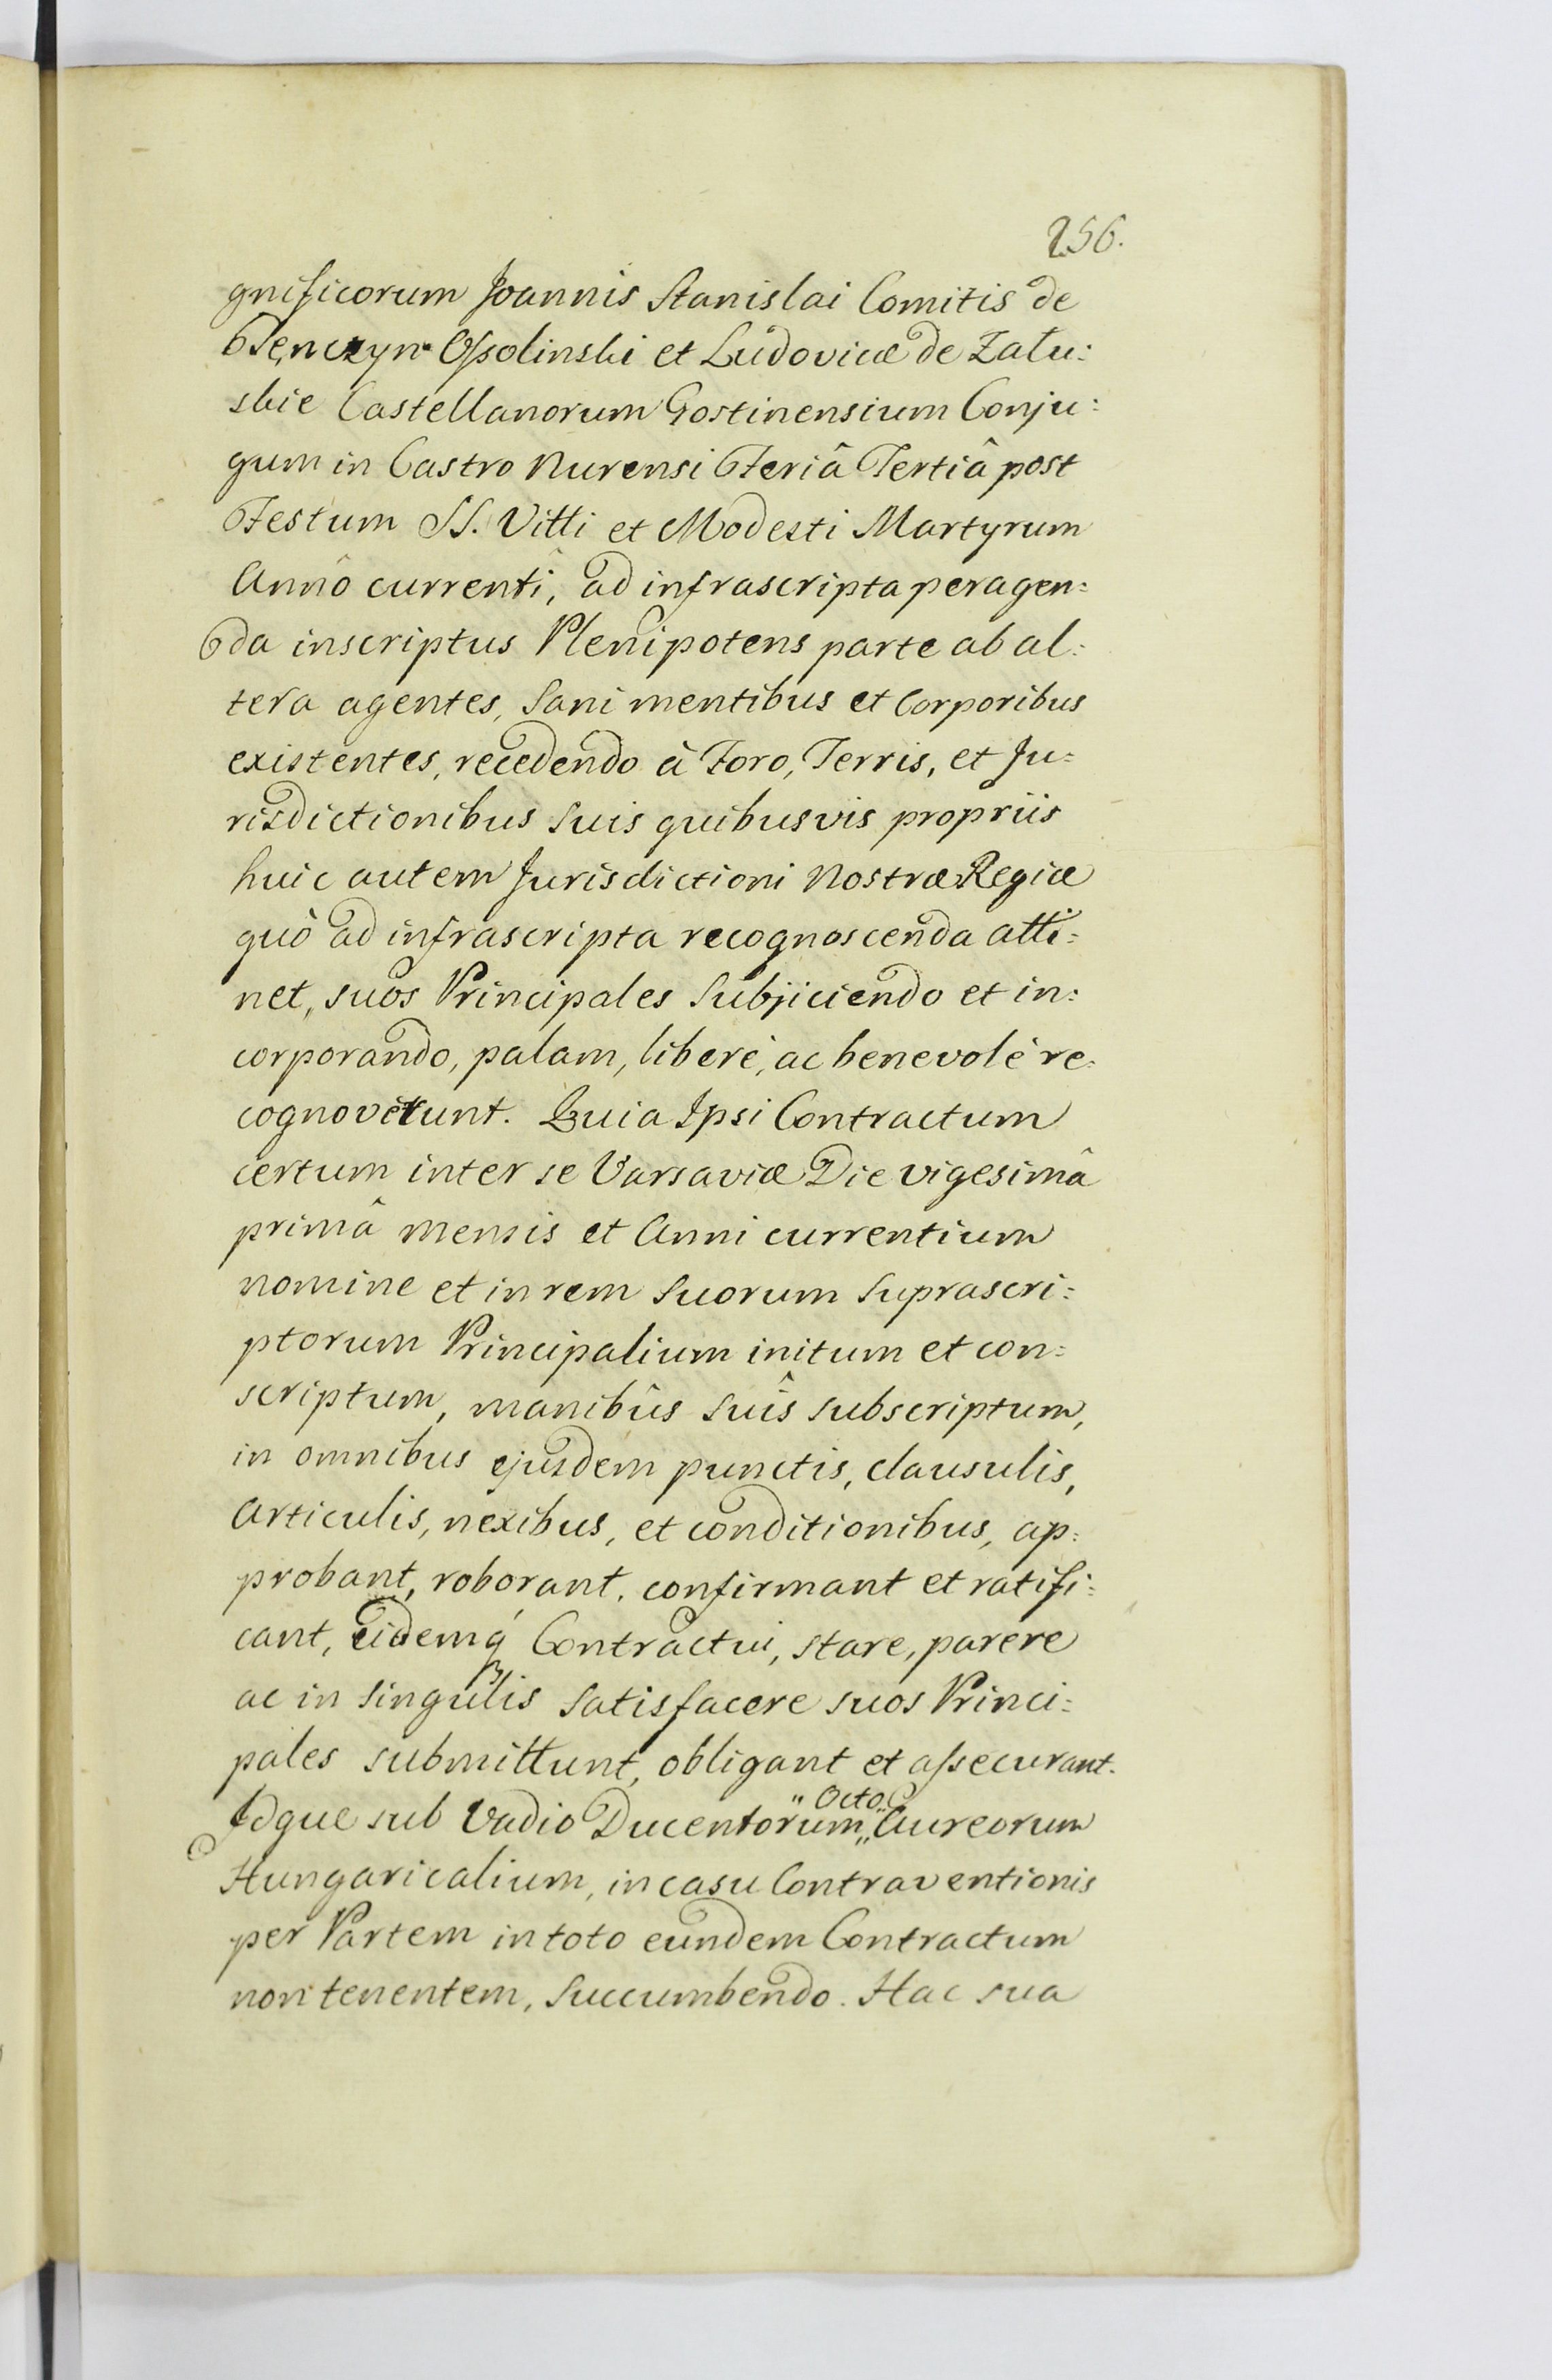 256.
gnificorum Joannis Stanislai Comitis de
Tęnczyn Ossolinski et Ludovicæ de Zału:
skie Castellanorum Gostinensium Conju:
gum in Castro Nurensi Feriâ Tertiâ post
Festum SS. Vitti et Modesti Martyrum
Annô currentî, ad infrascripta peragen:
da inscriptus Plenipotens parte ab al:
tera agentes, Sani mentibus et Corporibus
existentes, recedendo à Foro, Terris, et Ju:
risdictionibus Suis quibusvis propriis
huic autem Jurisdictioni Nostræ Regiæ
quò ad infrascripta recognoscenda atti:
net, suos Principales Subjiciendo et in:
corporando, palam, liberè, ac benevolè re:
cognoverunt. Quia Ipsi Contractum
certum inter se Varsaviæ Die vigesimâ
primâ mensis et Anni currentium
nomine et in rem Suorum Suprascri:
ptorum Principalium initum et con:
scriptum, manibûs Suîs subscriptum,
in omnibus ejusdem punctis, clausulis,
Articulis, nexibus, et conditionibus, ap:
probant, roborant, confirmant et ratifi:
cant, eidemq́ Contractui, stare, parere
ac in singulis Satisfacere suos Princi:
pales submittunt, obligant et assecurant.
Idque sub Vadio Ducentorum „ Octo „ Aureorum
Hungaricalium, in casu Contraventionis
per Partem in toto eundem Contractum
non tenentem, Succumbendo. Hac sua